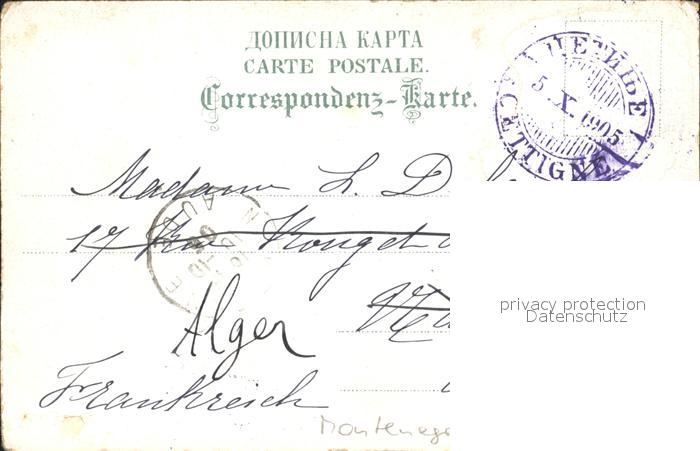 ДОПИСНА КАРТА
CARTE POSTALE.
Correspondenz-Karte.
ЦЕТИЊЕ
5. X. 1905
CETTIGNE
Madame L. D
17 Rue Rouget
Alger
Frankreich
Monteneg
privacy protection
Datenschutz